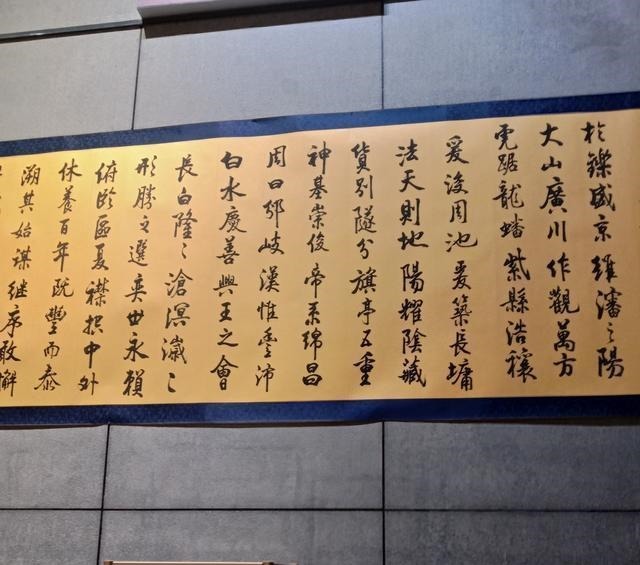 於鑠盛京維瀋之陽
大山廣川作觀萬方
虎踞龍蟠紫縣浩穰
爰浚周池爰築長墉
法天則地陽耀陰藏
貨別隧分旗亭五重
神基崇俊帝系綿昌
周曰邠岐漢惟豐沛
白水慶善興王之會
長白隆〻滄溟濊〻
形勝之選奕世永賴
俯臨區夏襟控中外
休養百年既豐而泰
溯其始謀繼序敢懈